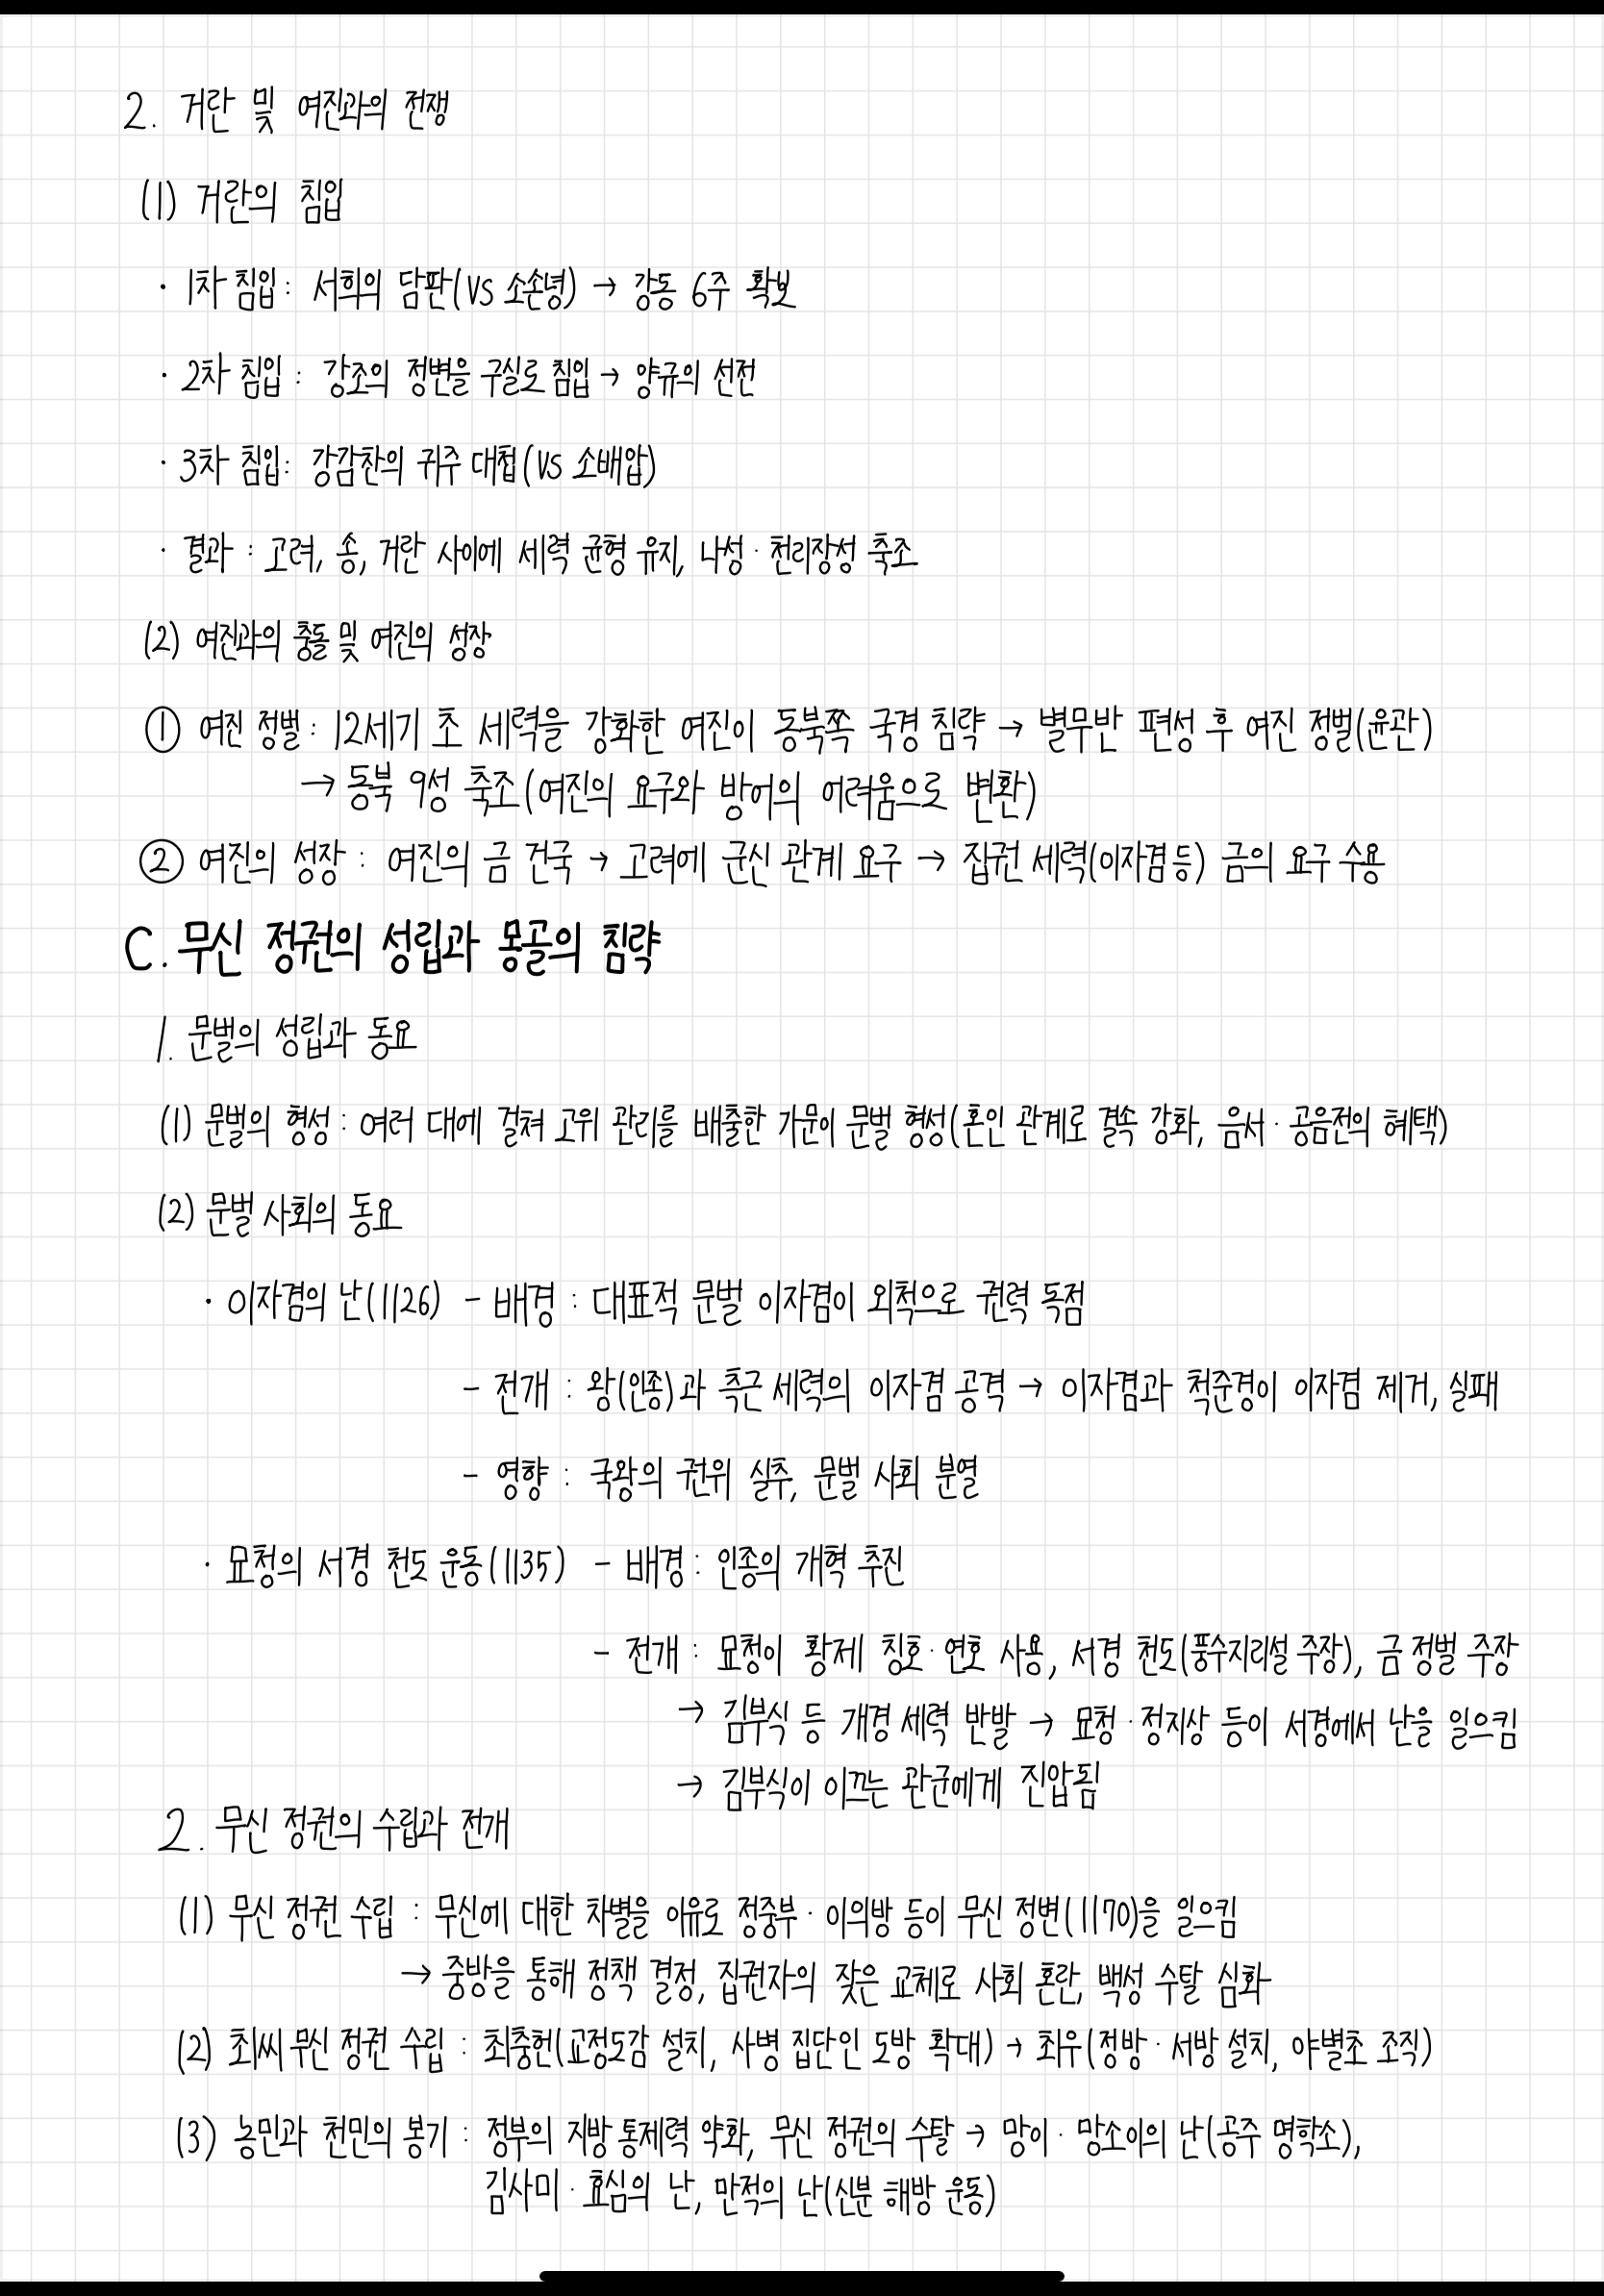 2. 거란 및 여진과의 전쟁
(1) 거란의 침입
· 1차 침입 : 서희의 담판(VS 소손녕) → 강동 6주 확보
· 2차 침입 : 강조의 정변을 구실로 침입 → 양규의 선전
· 3차 침입 : 강감찬의 귀주 대첩(VS 소배압)
· 결과 : 고려, 송, 거란 사이에 세력 균형 유지, 나성 · 천리장성 축조
(2) 여진과의 충돌 및 여진의 성장
① 여진 정벌 : 12세기 초 세력을 강화한 여진이 동북쪽 국경 침략 → 별무반 편성 후 여진 정벌(윤관)
→ 동북 9성 축조(여진의 요구와 방어의 어려움으로 변환)
② 여진의 성장 : 여진의 금 건국 → 고려에 군신 관계 요구 → 집권 세력(이자겸 등) 금의 요구 수용
C. 무신 정권의 성립과 몽골의 침략
1. 문벌의 성립과 동요
(1) 문벌의 형성 : 여러 대에 걸쳐 고위 관리를 배출한 가문이 문벌 형성(혼인 관계로 결속 강화, 음서 · 공음전의 혜택)
(2) 문벌 사회의 동요
· 이자겸의 난(1126) - 배경 : 대표적 문벌 이자겸이 외척으로 권력 독점
- 전개 : 왕(인종)과 측근 세력의 이자겸 공격 → 이자겸과 척준경이 이자겸 제거, 실패
- 영향 : 국왕의 권위 실추, 문벌 사회 분열
· 묘청의 서경 천도 운동(1135) - 배경 : 인종의 개혁 추진
- 전개 : 묘청이 황제 칭호 · 연호 사용, 서경 천도(풍수지리설 주장), 금 정벌 주장
→ 김부식 등 개경 세력 반발 → 묘청 · 정지상 등이 서경에서 난을 일으킴
→ 김부식이 이끄는 관군에게 진압됨
2. 무신 정권의 수립과 전개
(1) 무신 정권 수립 : 무신에 대한 차별을 이유로 정중부 · 이의방 등이 무신 정변(1170)을 일으킴
→ 중방을 통해 정책 결정, 집권자의 잦은 교체로 사회 혼란, 백성 수탈 심화
(2) 최씨 무신 정권 수립 : 최충헌(교정도감 설치, 사병 집단인 도방 확대) → 최우(정방 · 서방 설치, 야별초 조직)
(3) 농민과 천민의 봉기 : 정부의 지방 통제력 약화, 무신 정권의 수탈 → 망이 · 망소이의 난(공주 명학소),
김사미 · 효심의 난, 만적의 난(신분 해방 운동)